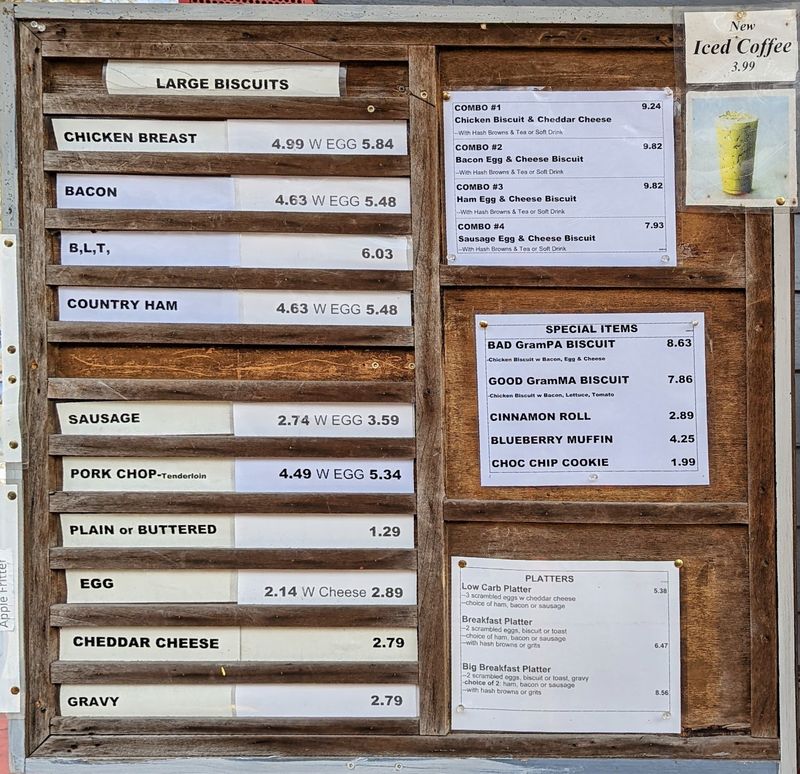 New
Iced Coffee
3.99
LARGE BISCUITS
CHICKEN BREAST 4.99 W EGG 5.84
BACON 4.63 W EGG 5.48
B,L,T, 6.03
COUNTRY HAM 4.63 W EGG 5.48
SAUSAGE 2.74 W EGG 3.59
PORK CHOP-Tenderloin 4.49 W EGG 5.34
PLAIN or BUTTERED 1.29
EGG 2.14 W Cheese 2.89
CHEDDAR CHEESE 2.79
GRAVY 2.79
COMBO #1 9.24
Chicken Biscuit & Cheddar Cheese
--With Hash Browns & Tea or Soft Drink
COMBO #2 9.82
Bacon Egg & Cheese Biscuit
--With Hash Browns & Tea or Soft Drink
COMBO #3 9.82
Ham Egg & Cheese Biscuit
--With Hash Browns & Tea or Soft Drink
COMBO #4 7.93
Sausage Egg & Cheese Biscuit
--With Hash Browns & Tea or Soft Drink
SPECIAL ITEMS
BAD GramPA BISCUIT 8.63
-Chicken Biscuit w Bacon, Egg & Cheese
GOOD GramMA BISCUIT 7.86
-Chicken Biscuit w Bacon, Lettuce, Tomato
CINNAMON ROLL 2.89
BLUEBERRY MUFFIN 4.25
CHOC CHIP COOKIE 1.99
PLATTERS
Low Carb Platter 5.38
--3 scrambled eggs w cheddar cheese
--choice of ham, bacon or sausage
Breakfast Platter
--2 scrambled eggs, biscuit or toast
--choice of ham, bacon or sausage
--with hash browns or grits 6.47
Big Breakfast Platter
--2 scrambled eggs, biscuit or toast, gravy
-choice of 2: ham, bacon or sausage
--with hash browns or grits 8.56
Apple Fritter